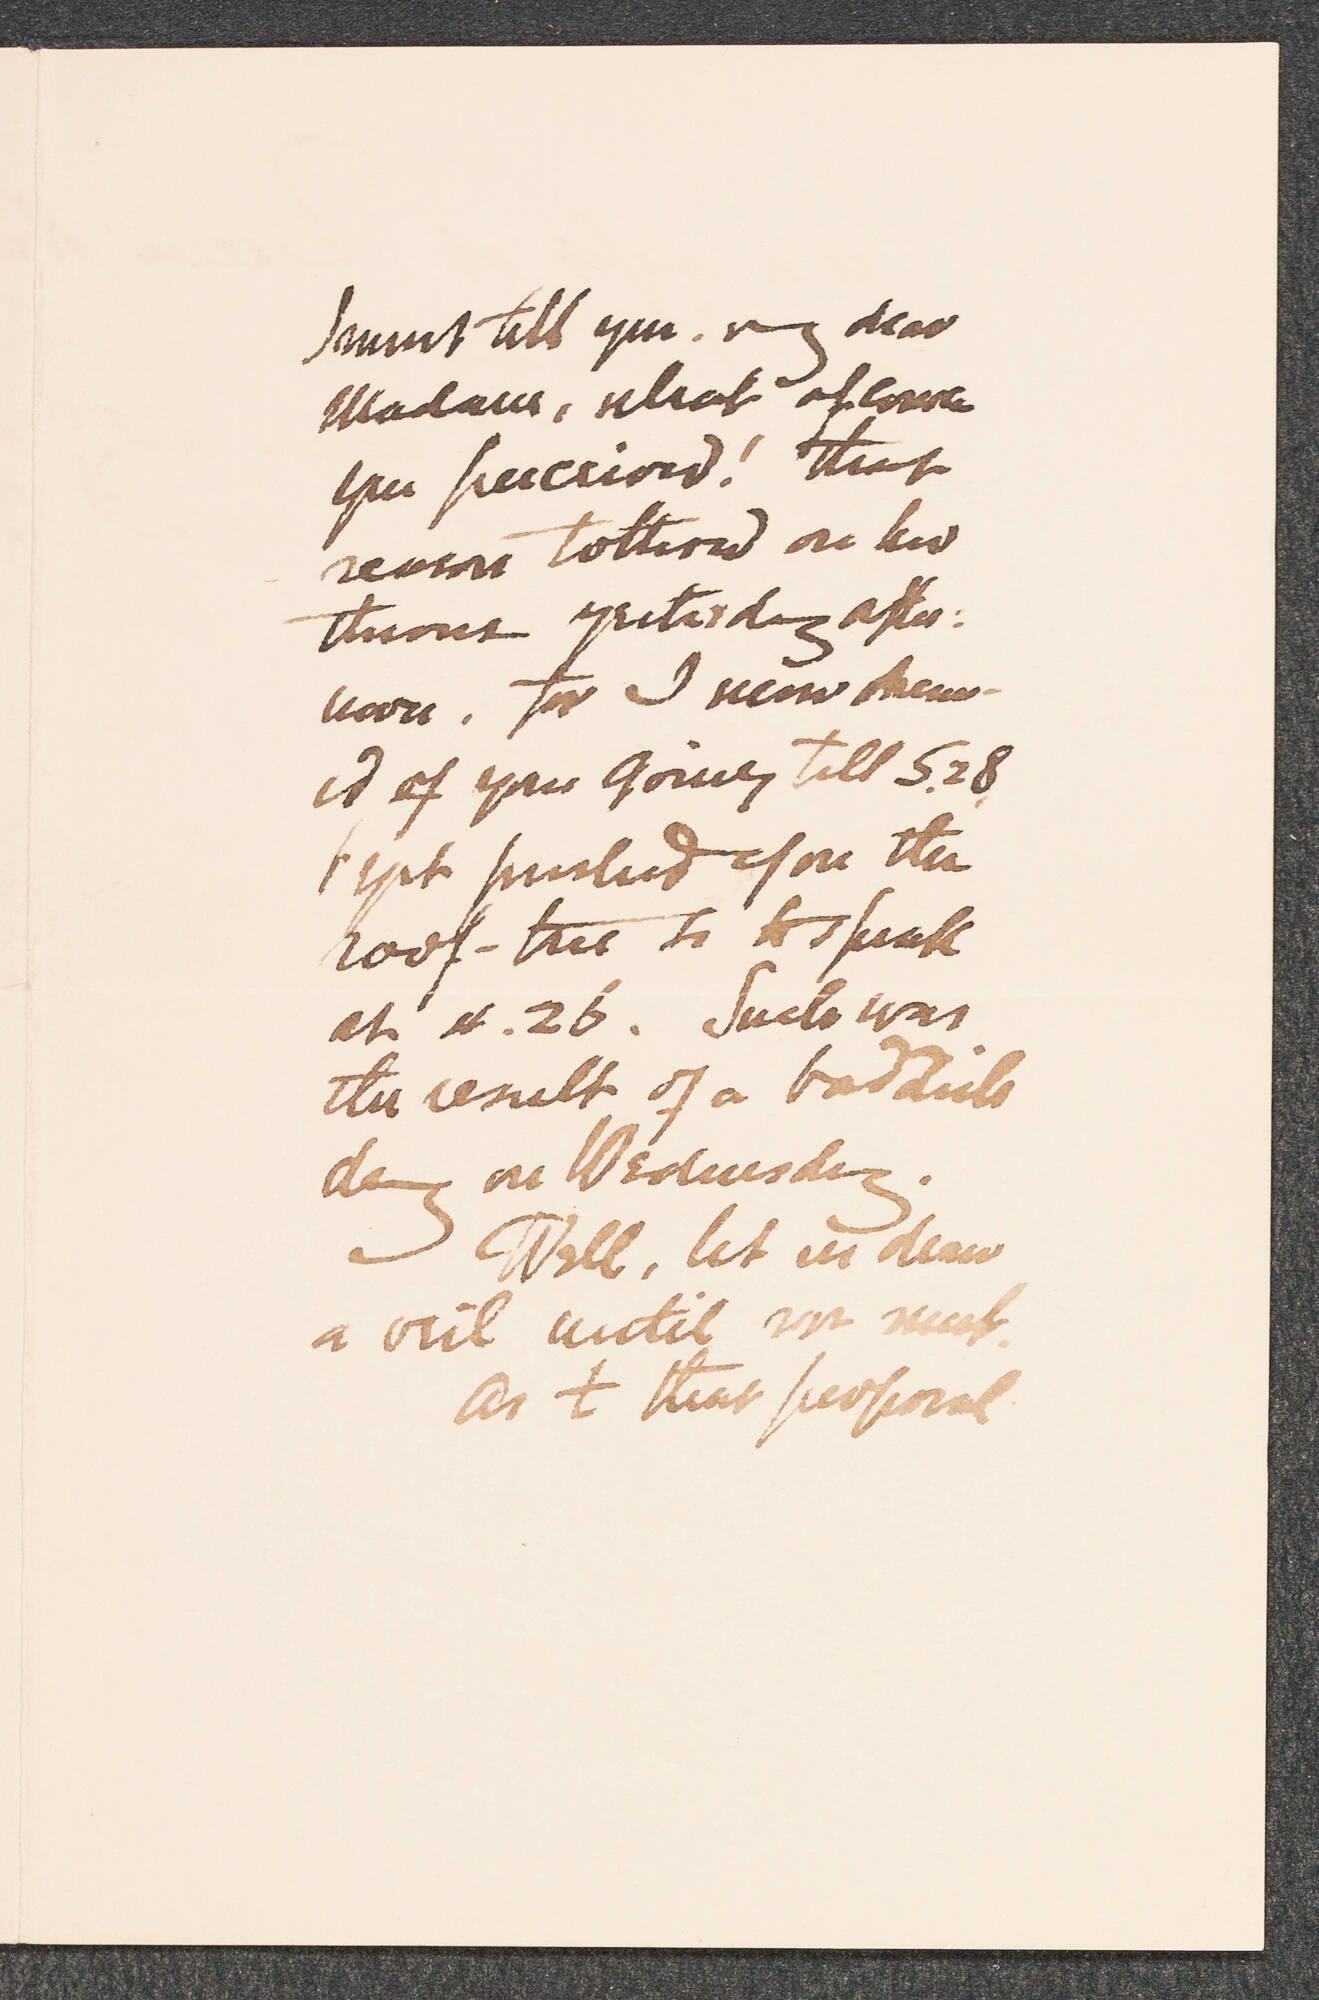 I must tell you, my dear
Madame, what of course
you perceived! That
reason tottered on her
throne yesterday after-
noon, for I never dream-
ed of you going till 5.28,
& yet pushed upon the
roof-tree so to speak
at 4.26. Such was
the result of a
day on Wednesday.
Well, let us draw
a veil until we meet.
As to that proposal